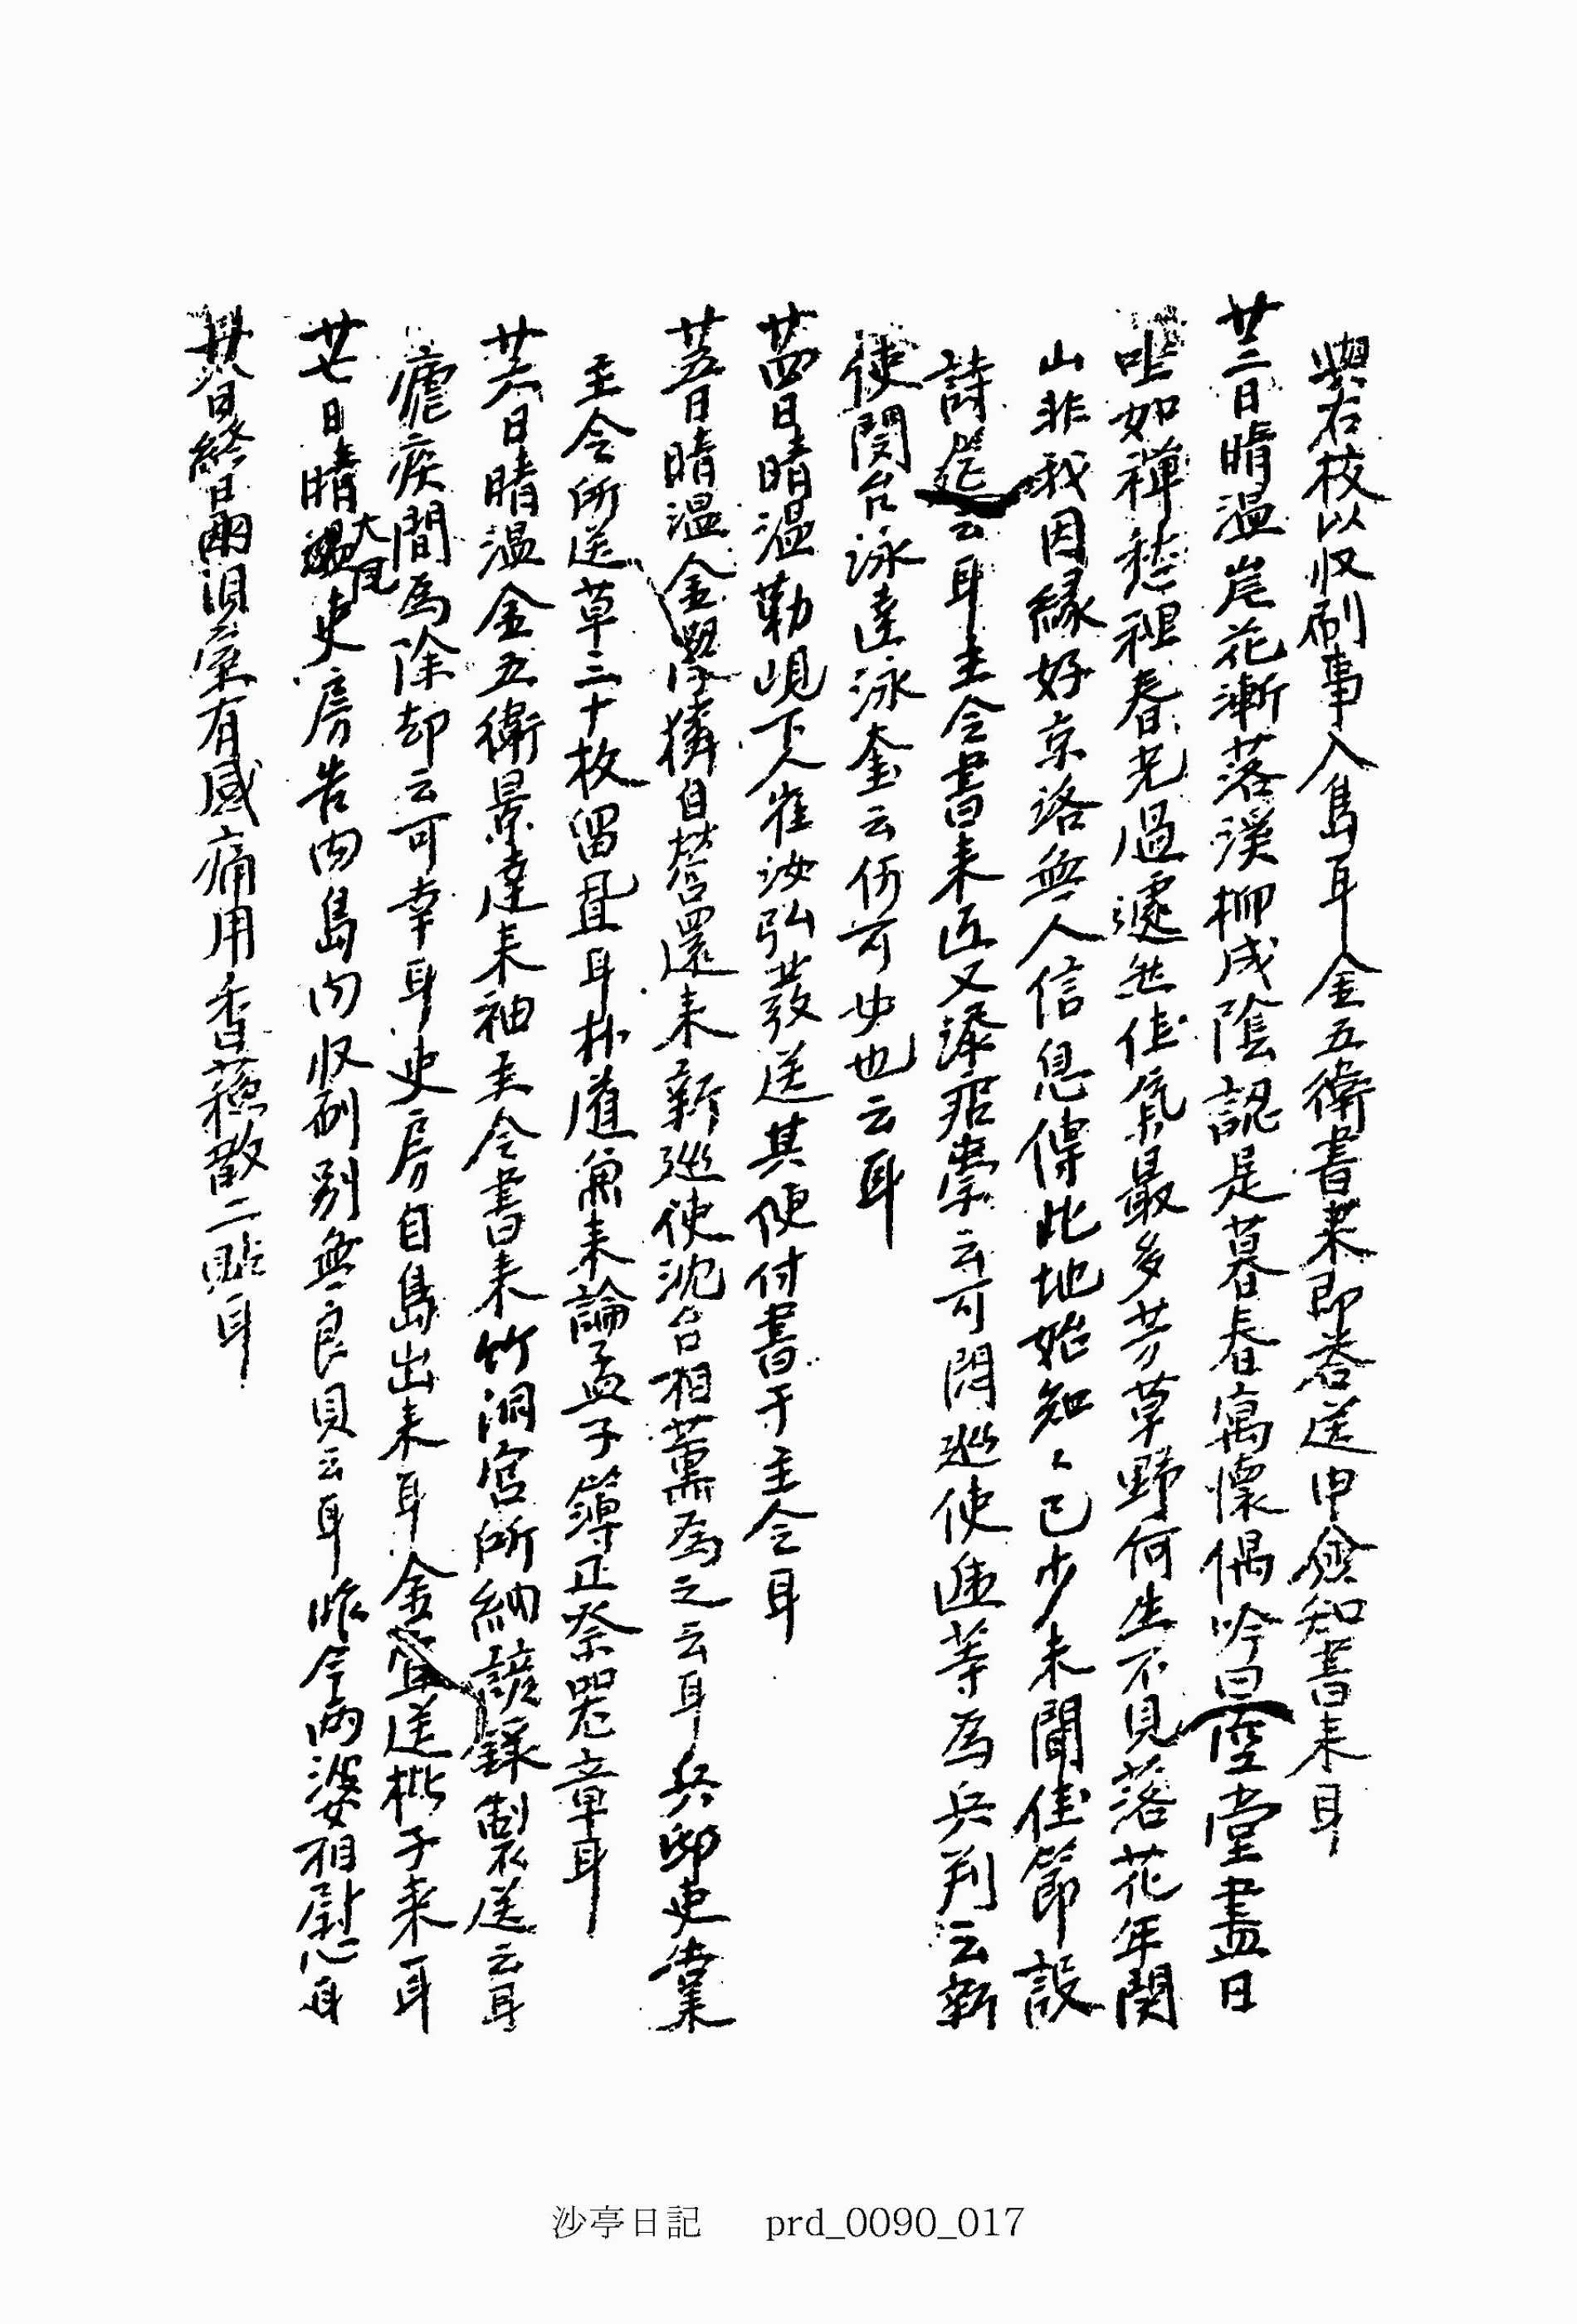 與右校以収刷事入島耳金五衛書來即卷送申僉知書來耳
廿三日晴溫崖花漸落溪柳成陰認是暮春寓懷偶吟曰虛堂盡日
坐如禪愁裡春光過遽然佳氣最多芳草野何生不見落花年関
山非我因緣好京洛無人信息傳此地始知知己少未聞佳節設
詩筵云耳主令書來近又添痁祟云可悶巡使進等為兵判云新
使閔台泳達泳奎云何可必也云耳
卄四日晴溫勒峴下人崔汝弘發送其便付書于主令耳
卄五日晴溫金學獜自營還來新巡使沈台相薰為之云耳兵邸吏業
主令所送草三十枚留置耳朴道兼來論孟子簿正祭器章耳
卄六日晴溫金五衛景達來袖主令書來竹洞宮所納諺錄製送云耳
瘧疾間為除却云可幸耳吏房自島出來耳金宜送柹子來耳
廿七日晴大風吏房告內島內収刷別無良貝云耳昨今兩婆相慰耳
卄八日終日雨渠有感痛用香蘇散二貼耳
沙亭日記 prd_0090_017